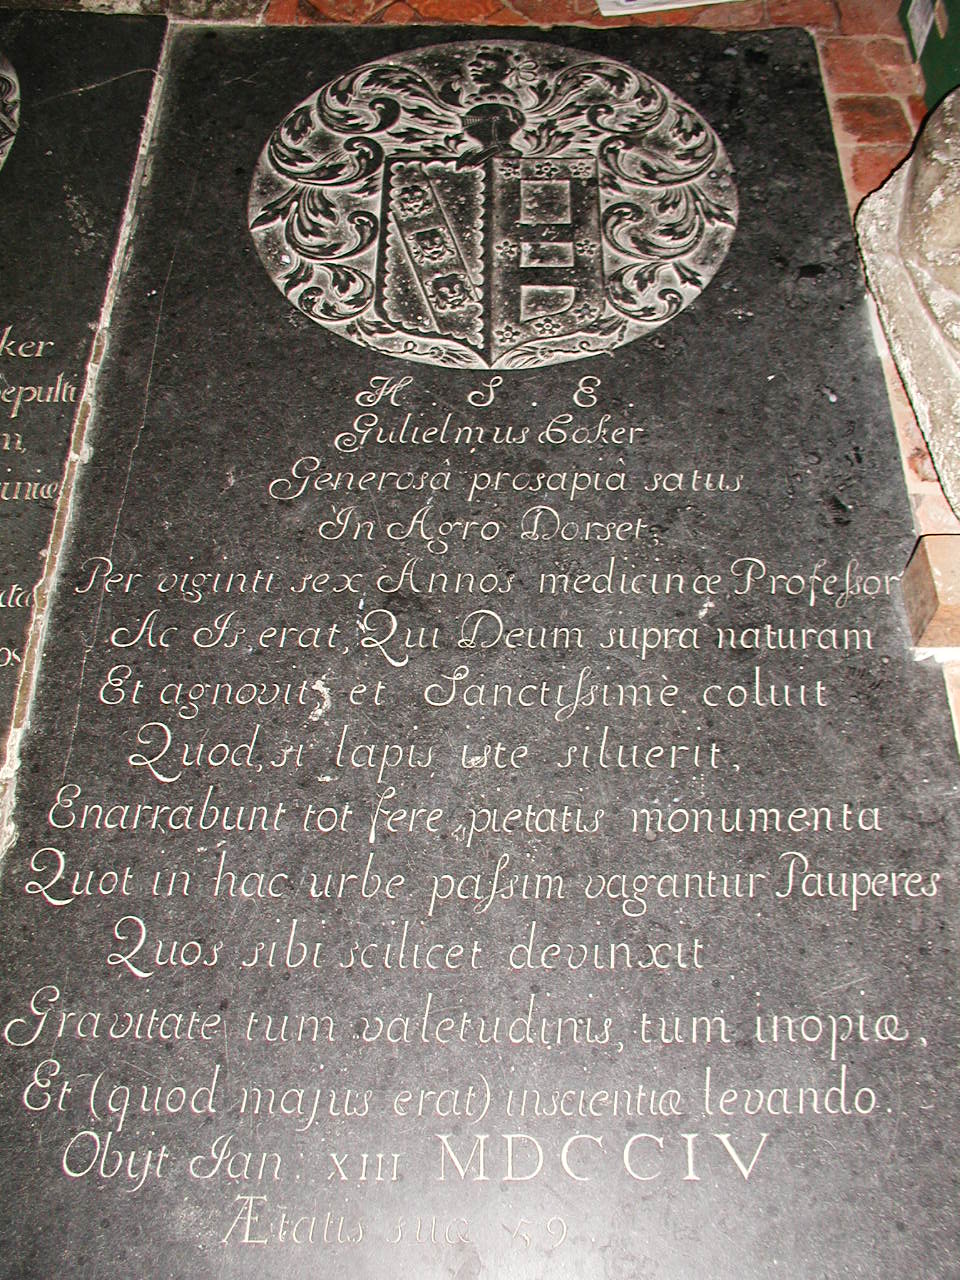 H . S . E .
Gulielmus Coker
Generosâ prosapiâ satus
In Agro Dorset:
Per viginti sex Annos medicinæ Profeſsor
Ac Is erat, Qui Deum supra naturam
Et agnovit, et Sanctiſsimè coluit
Quod, si lapis iste siluerit,
Enarrabunt tot fere pietatis monumenta
Quot in hac urbe paſsim vagantur Pauperes
Quos sibi scilicet devinxit
Gravitate tum valetudinis, tum inopiæ,
Et (quod majus erat) inscientiæ levando.
Obijt Jan: XIII MDCCIV
Ætatis suæ 59.
ker
sepulti